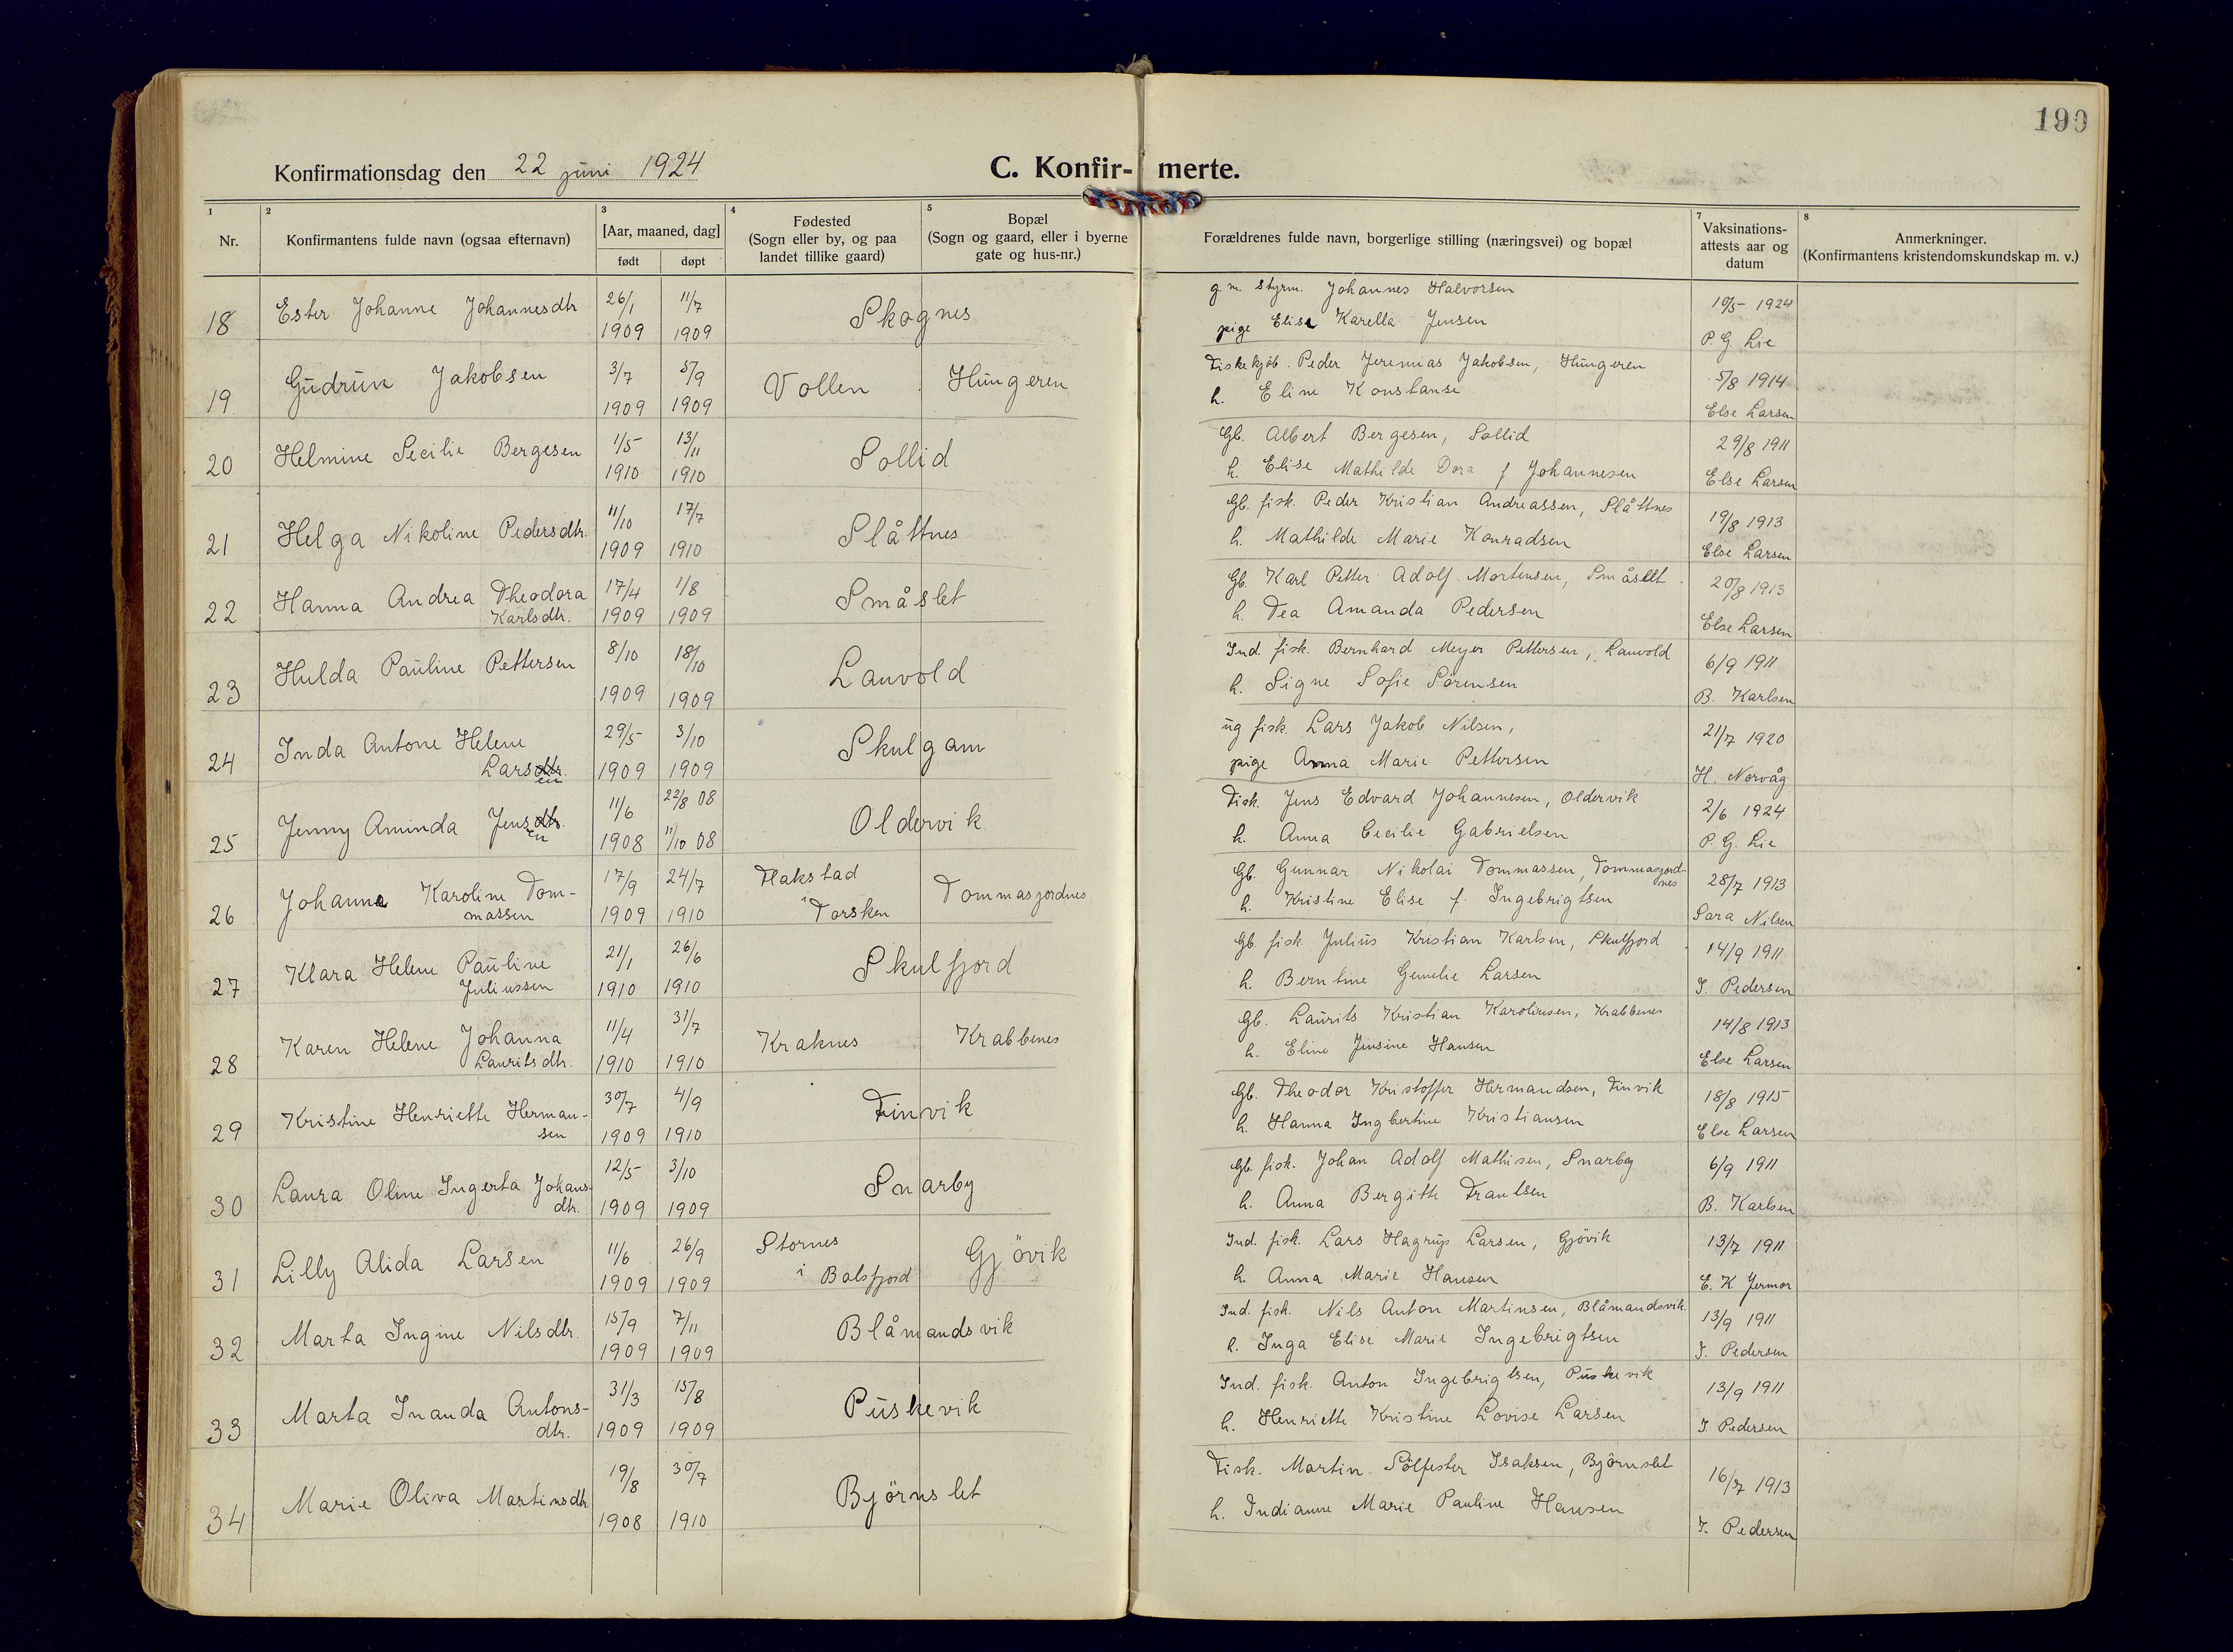 190
Konfirmationsdag den 22 juni 1924
C. Konfir- merte.
1 Nr.
2 Konfirmantens fulde navn (ogsaa efternavn)
3 [Aar, maaned, dag] født døpt
4 Fødested (Sogn eller by, og paa landet tillike gaard)
5 Bopæl (Sogn og gaard, eller i byerne gate og hus-nr.)
Forældrenes fulde navn, borgerlige stilling (næringsvei) og bopæl
7 Vaksinations-attests aar og datum
8 Anmerkninger. (Konfirmantens kristendomskundskap m. v.)
18 Ester Johanne Johannesdtr 26/1 1909 11/7 1909 Skognes
g. m. Styrm. Johannes Halvorsen
pige Elise Karella Jensen
10/5 1924
P. G. Lie
19 Gudrun Jakobsen 3/7 1909 5/9 1909 Vollen Hungeren
Fiskekjøb. Peder Jeremias Jakobsen, Hungeren
h. Eline Konstanse
5/8 1914
Else Larsen
20 Helmine Secilie Bergesen 1/5 1910 13/11 1910 Sollid
Gb. Albert Bergesen, Sollid
h. Elise Mathilde Dora f Johannesen
29/8 1911
Else Larsen
21 Helga Nikoline Pedersdtr. 11/10 1909 17/7 1910 Slåttnes
Gb. fisk. Peder Kristian Andreassen, Slåttnes
h. Mathilde Marie Konradsen
19/8 1913
Else Larsen
22 Hanna Andrea Theodora
Karlsdtr. 17/4 1909 1/8 1909 Småslet
Gb. Karl Petter Adolf Mortensen, Småslett
h. Tea Amanda Pedersen
20/8 1913
Else Larsen
23 Hulda Pauline Pettersen 8/10 1909 18/10 1909 Lauvold
Ind. fisk. Bernhard Meyer Pettersen, Lauvold
h. Signe Sofie Sörensen
6/9 1911
B. Karlsen
24 Inda Antone Helene
Larsdtr. en 29/5 1909 3/10 1909 Skulgam
ug fisk. Lars Jakob Nilsen,
pige Anna Marie Pettersen
21/7 1920
H. Norvåg
25 Jenny Aminda Jensdtr. en 11/6 1908 22/8 08 11/10 08 Oldervik
Fisk. Jens Edvard Johannesen, Oldervik
h. Anna Cecilie Gabrielsen
2/6 1924
P. G. Lie
26 Johanne Karoline Tom-
massen 17/9 1909 24/7 1910 Flakstad
i Torsken Tommasjordnes
Gb. Gunnar Nikolai Tommassen, Tommasjord-
nes
h. Kristine Elise f. Ingebrigtsen
28/7 1913
Sara Nilsen
27 Klara Helene Pauline
Juliussen 21/1 1910 26/6 1910 Skulfjord
Gb. fisk. Julius Kristian Karlsen, Skulfjord
h. Berntine Gemelie Larsen
14/9 1911
J. Pedersen
28 Karen Helene Johanna
Lauritsdtr. 11/4 1910 31/7 1910 Kraknes Krabbenes
Gb. Laurits Kristian Karoliusen, Krabbenes
h. Eline Jensine Hansen
14/8 1913
Else Larsen
29 Kristine Henriette Herman-
sen 30/7 1909 4/9 1910 Finvik
Gb. Theodor Kristoffer Hermandsen, Finvik
h. Hanna Ingbertine Kristiansen
18/8 1915
Else Larsen
30 Laura Oline Ingerta Johans-
dtr. 12/5 1909 3/10 1909 Snarby
Gb. fisk. Johan Adolf Mathisen, Snarby
h. Anna Bergitte Frantsen
6/9 1911
B. Karlsen
31 Lilly Alida Larsen 11/6 1909 26/9 1909 Stornes
i Balsfjord Gjövik
Ind. fisk. Lars Hagrup Larsen, Gjövik
h. Anna Marie Hansen
13/7 1911
E. K. Jermor
32 Marta Ingine Nilsdtr. 15/9 1909 7/11 1909 Blåmandsvik
Ind. fisk. Nils Anton Martinsen, Blåmandsvik.
h. Inga Elise Marie Ingebrigtsen
13/9 1911
J. Pedersen
33 Marta Inanda Antons-
dtr. 31/3 1909 15/8 1909 Puskevik
Ind. fisk. Anton Ingebrigtsen, Puskevik
h. Henriette Kristine Lovise Larsen
13/9 1911
J. Pedersen
34 Marie Oliva Martinsdtr 19/8 1908 30/7 1910 Björnslet
Fisk. Martin Sölfester Isaksen, Björnslet
h. Indianne Marie Pauline Hansen
16/7 1913
J. Pedersen